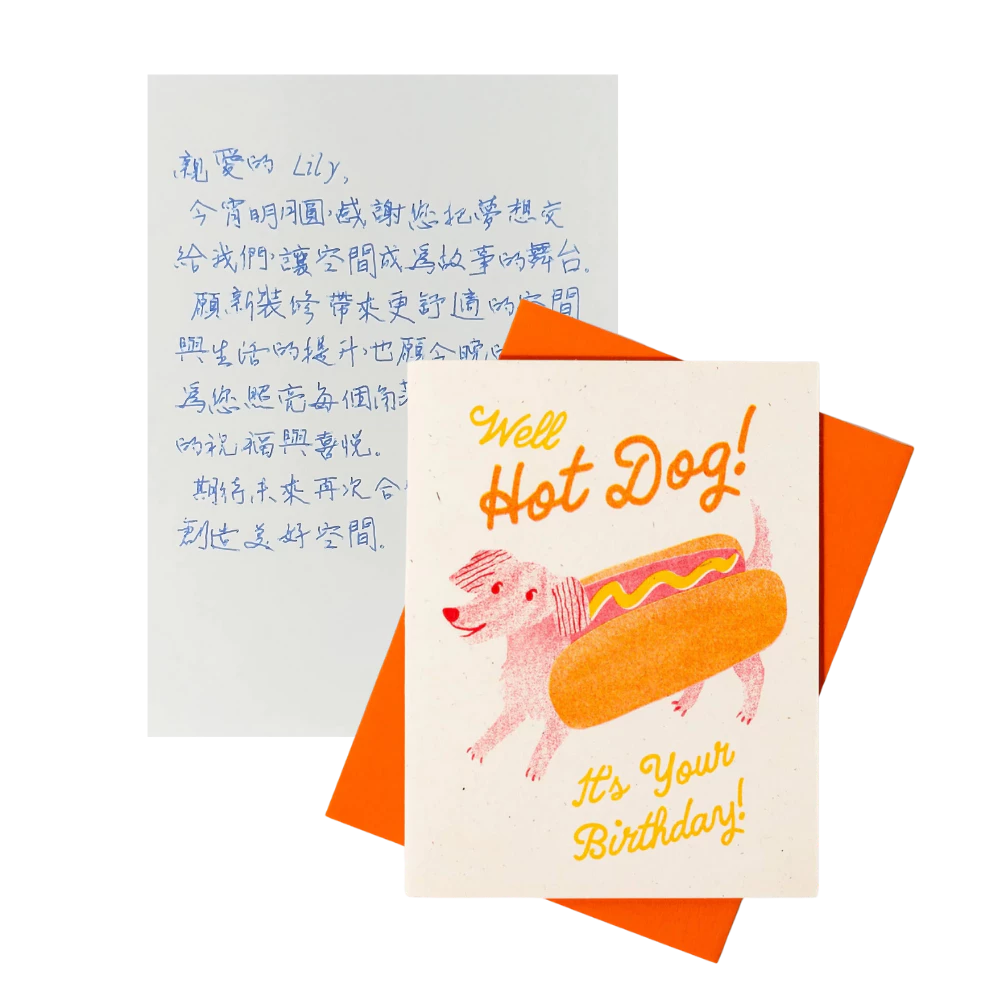 親愛的 Lily,
今宵明月圓,感謝您把夢想交
給我們,讓空間成為故事的舞台。
願新裝修帶來更舒適的空間
與生活的提升,也願今晚
為您照亮每個角落
的祝福與喜悅。
期待未來再次合
創造美好空間。
Well
Hot Dog!
It's Your
Birthday!